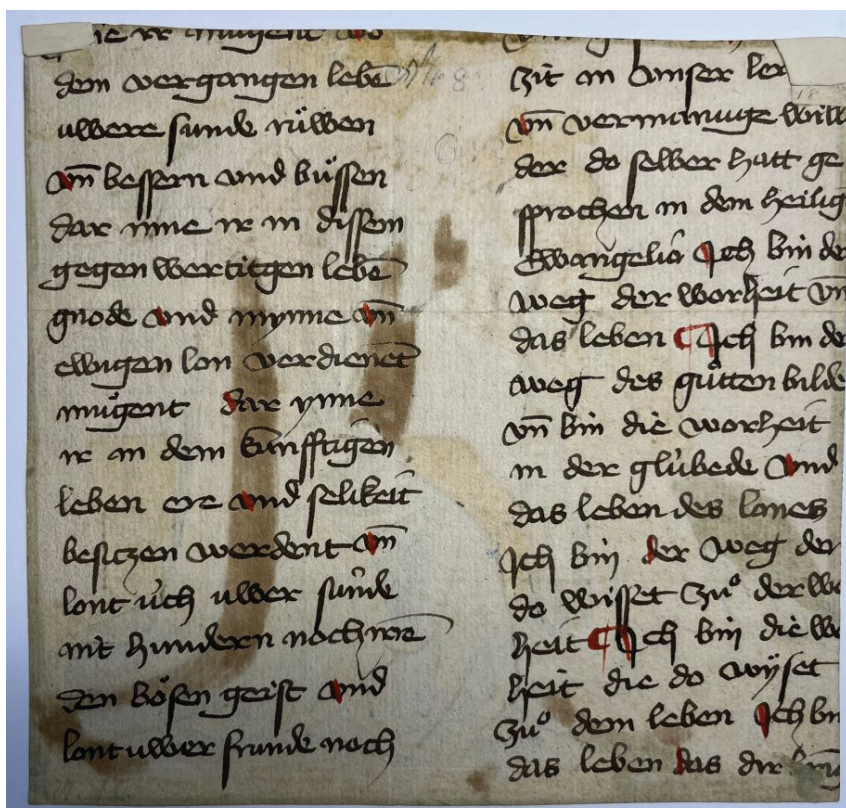 ir mugent
dem vergangen lebē
uwere sunde rüwen
vn̄ bessern vnd büssen
dar inne ir in dissem
gegen wertitgen lebē
gnode vnd mynne vn̄
ewigen lon verdienēt
mügent dar ynne
ir in dem kūnfftigen
leben ere vnd selikeit
besitzen werdent vn̄
lont üch uwer sünde
nit hindern noch
den bösen geist vnd
lont uwer frunde noch
zit in vnser
vn̄ vermanuge
der do selber hatt ge
sprochen in dem heilig
Ewangelio Ich bin der
weg der worheit vn̄
das leben ¶ Ich bin der
weg des gůtten bilde
vn̄ bin die worheit
in der glübede vnd
das leben des lones
Ich bin der weg der
do wisset zuͦ der wo
heit ¶ Ich bin die wo
heit die do wÿset
zuͦ dem leben Ich bin
das leben das dir